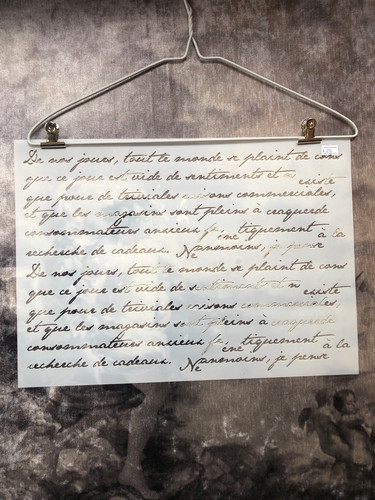 De nos jours, tout le monde se plaint de cons
que ce jour est vide de sentiments et
existe
que pour de triviales raisons commerciales,
et que les magasins sont pleins à craquerde
consommateurs anxieux
tiquement à la
recherche de cadeaux. Neansmoins, je pense
De nos jours, tout le monde se plaint de cons
que ce jour est vide de sentiment et n existe
que pour de triviales raisons commerciales,
et que les magasins sont pleins à craquerde
consommateurs anxieux
tiquement à la
recherche de cadeaux. Neansmoins, je pense